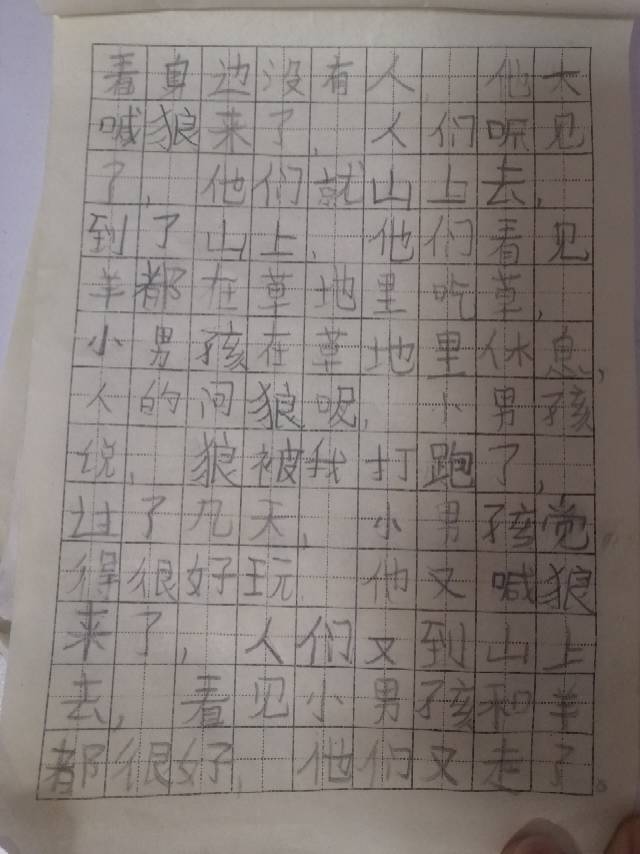 着身边没有人,他大
喊狼来了,人们听见
了,他们就山上去,
到了山上,他们看见
羊都在草地里吃草,
小男孩在草地里休息,
人的问狼呢,小男孩
说,狼被我打跑了,
过了几天,小男孩觉
得很好玩 他又喊狼
来了,人们又到山上
去,看见小男孩和羊
都很好,他们又走了